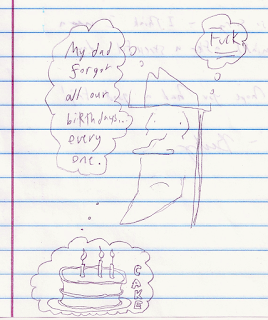 My dad
forgot
all our
birthdays...
every
one.
Fuck.
CAKE